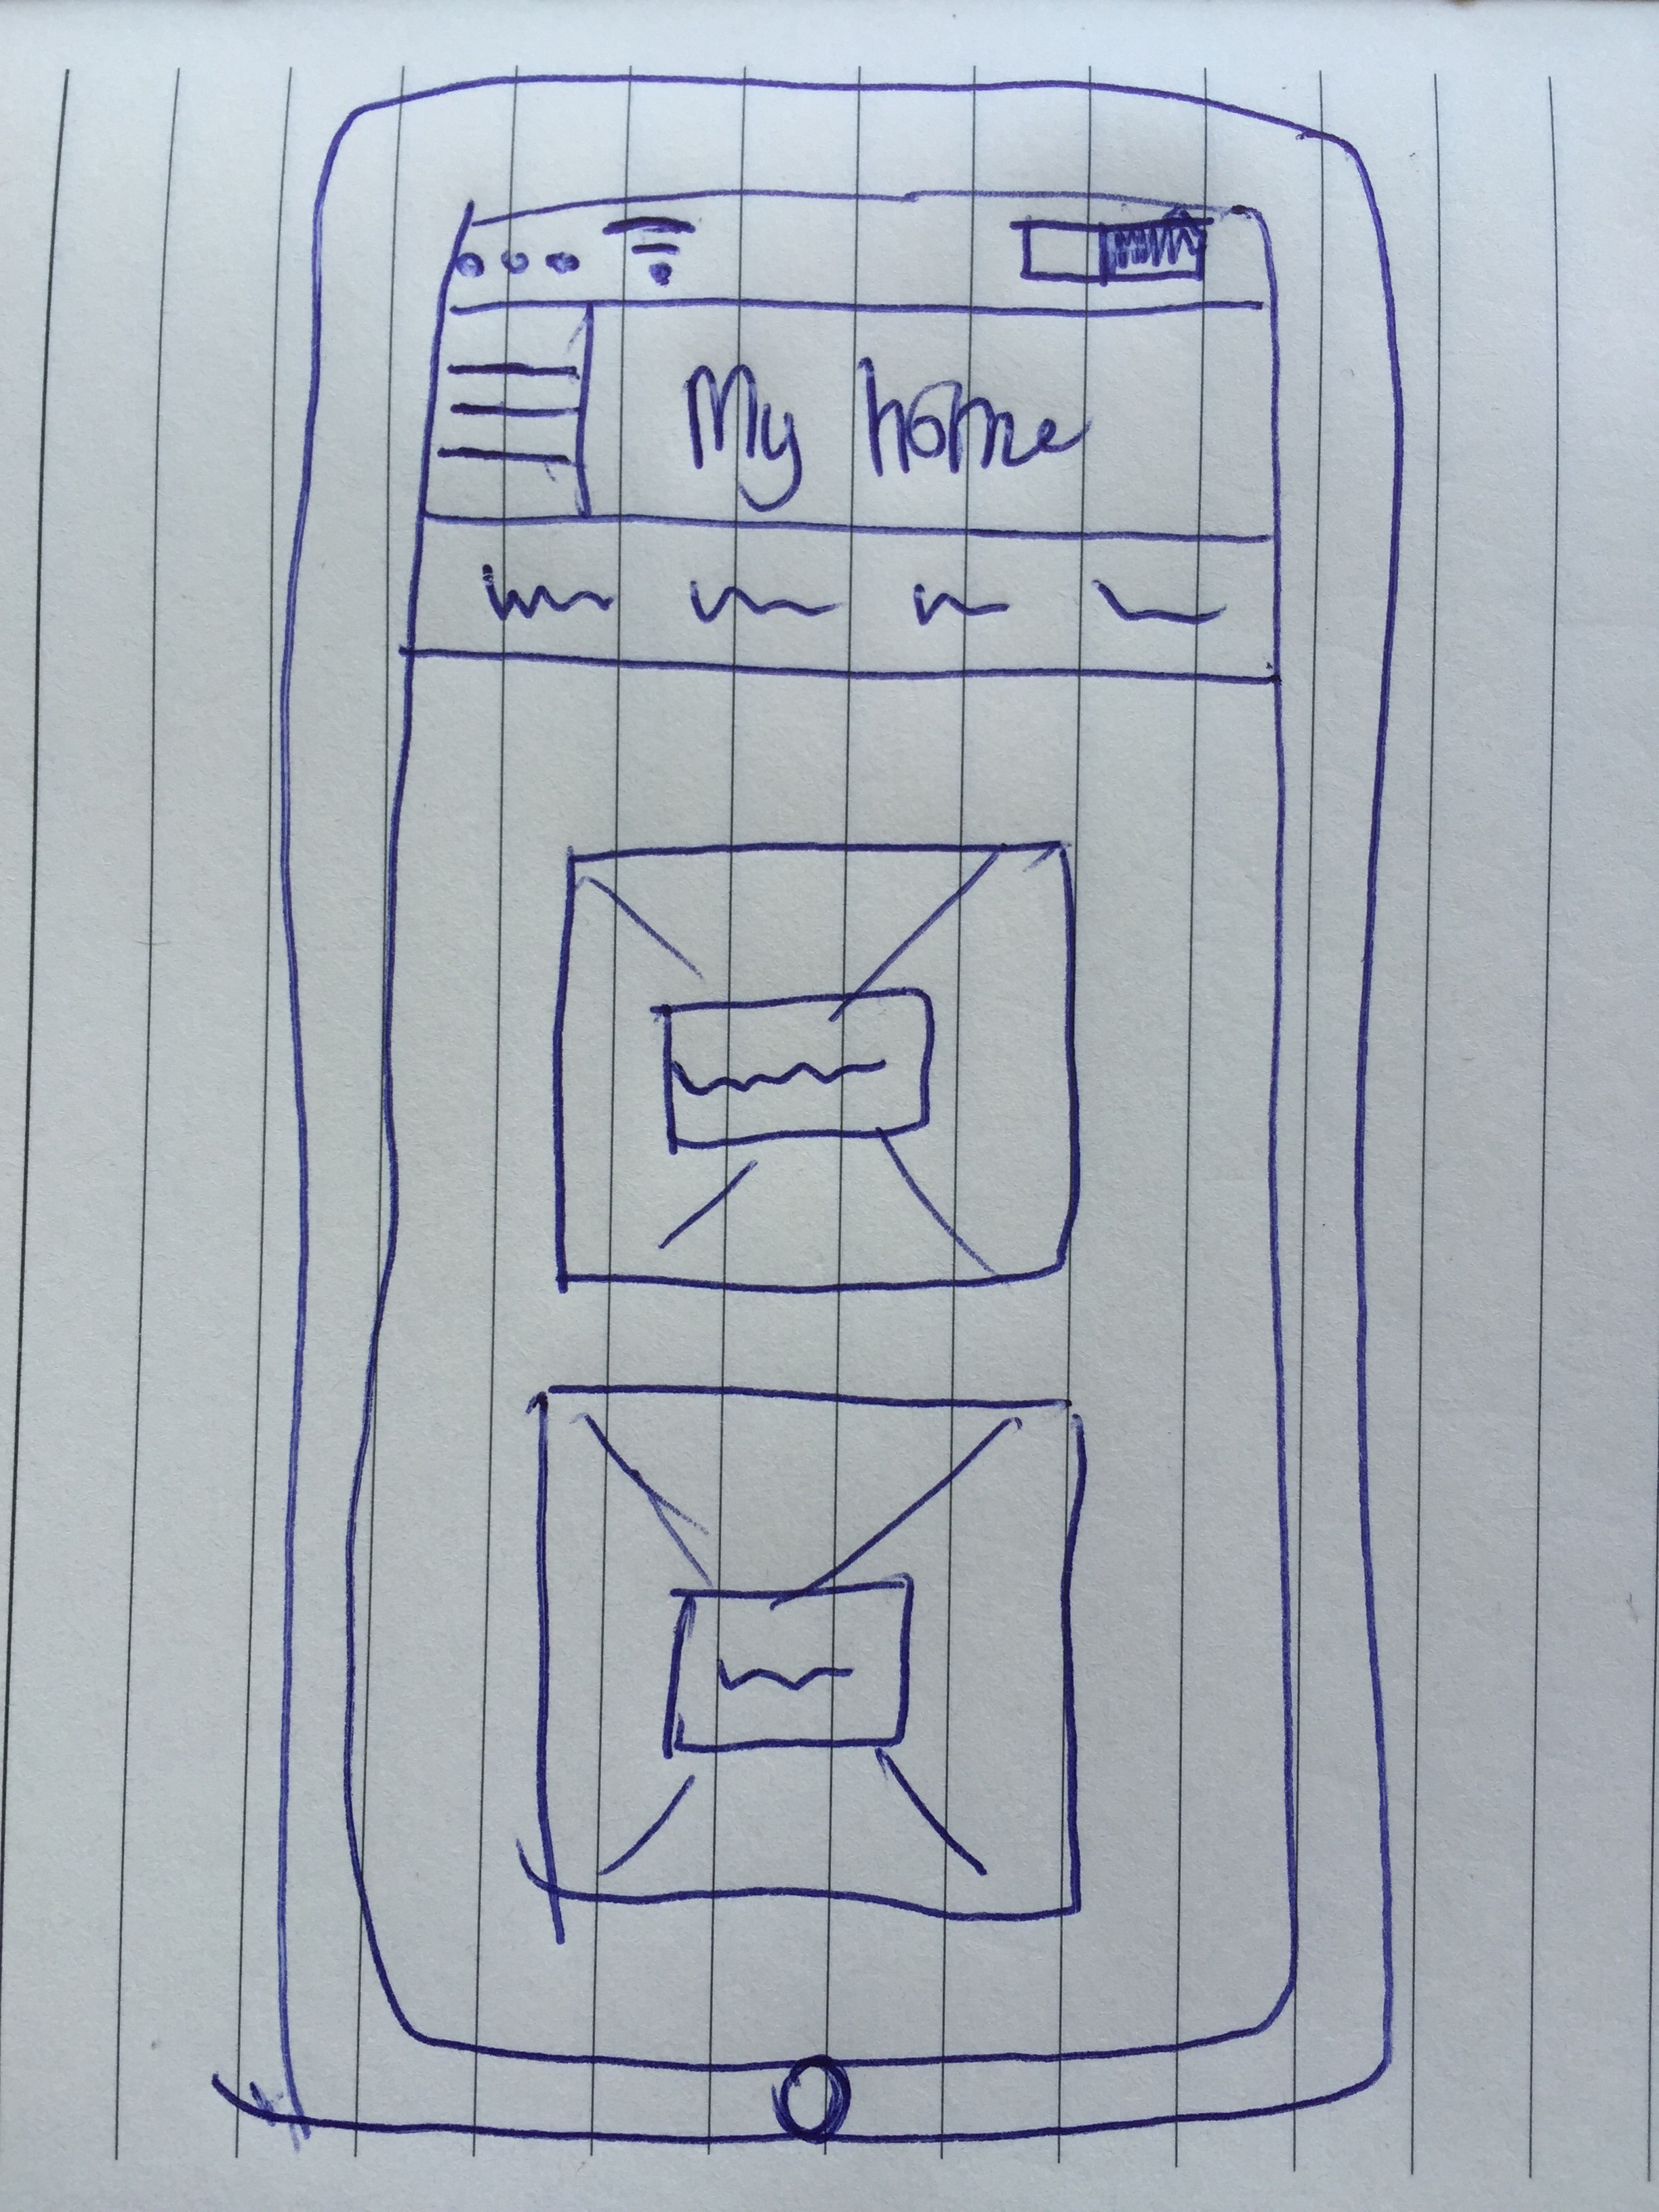 My home